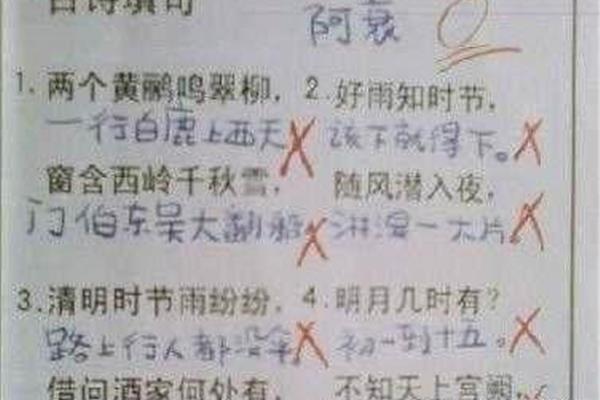 古诗填句
阿衰 0
1. 两个黄鹂鸣翠柳， 2. 好雨知时节，
一行白鹿上西天 该下就得下。
窗含西岭千秋雪， 随风潜入夜，
门伯东吴大翻船 淋湿一大片。
3. 清明时节雨纷纷， 4. 明月几时有？
路上行人都没伞 初一到十五。
借问酒家何处有， 不知天上宫阙，